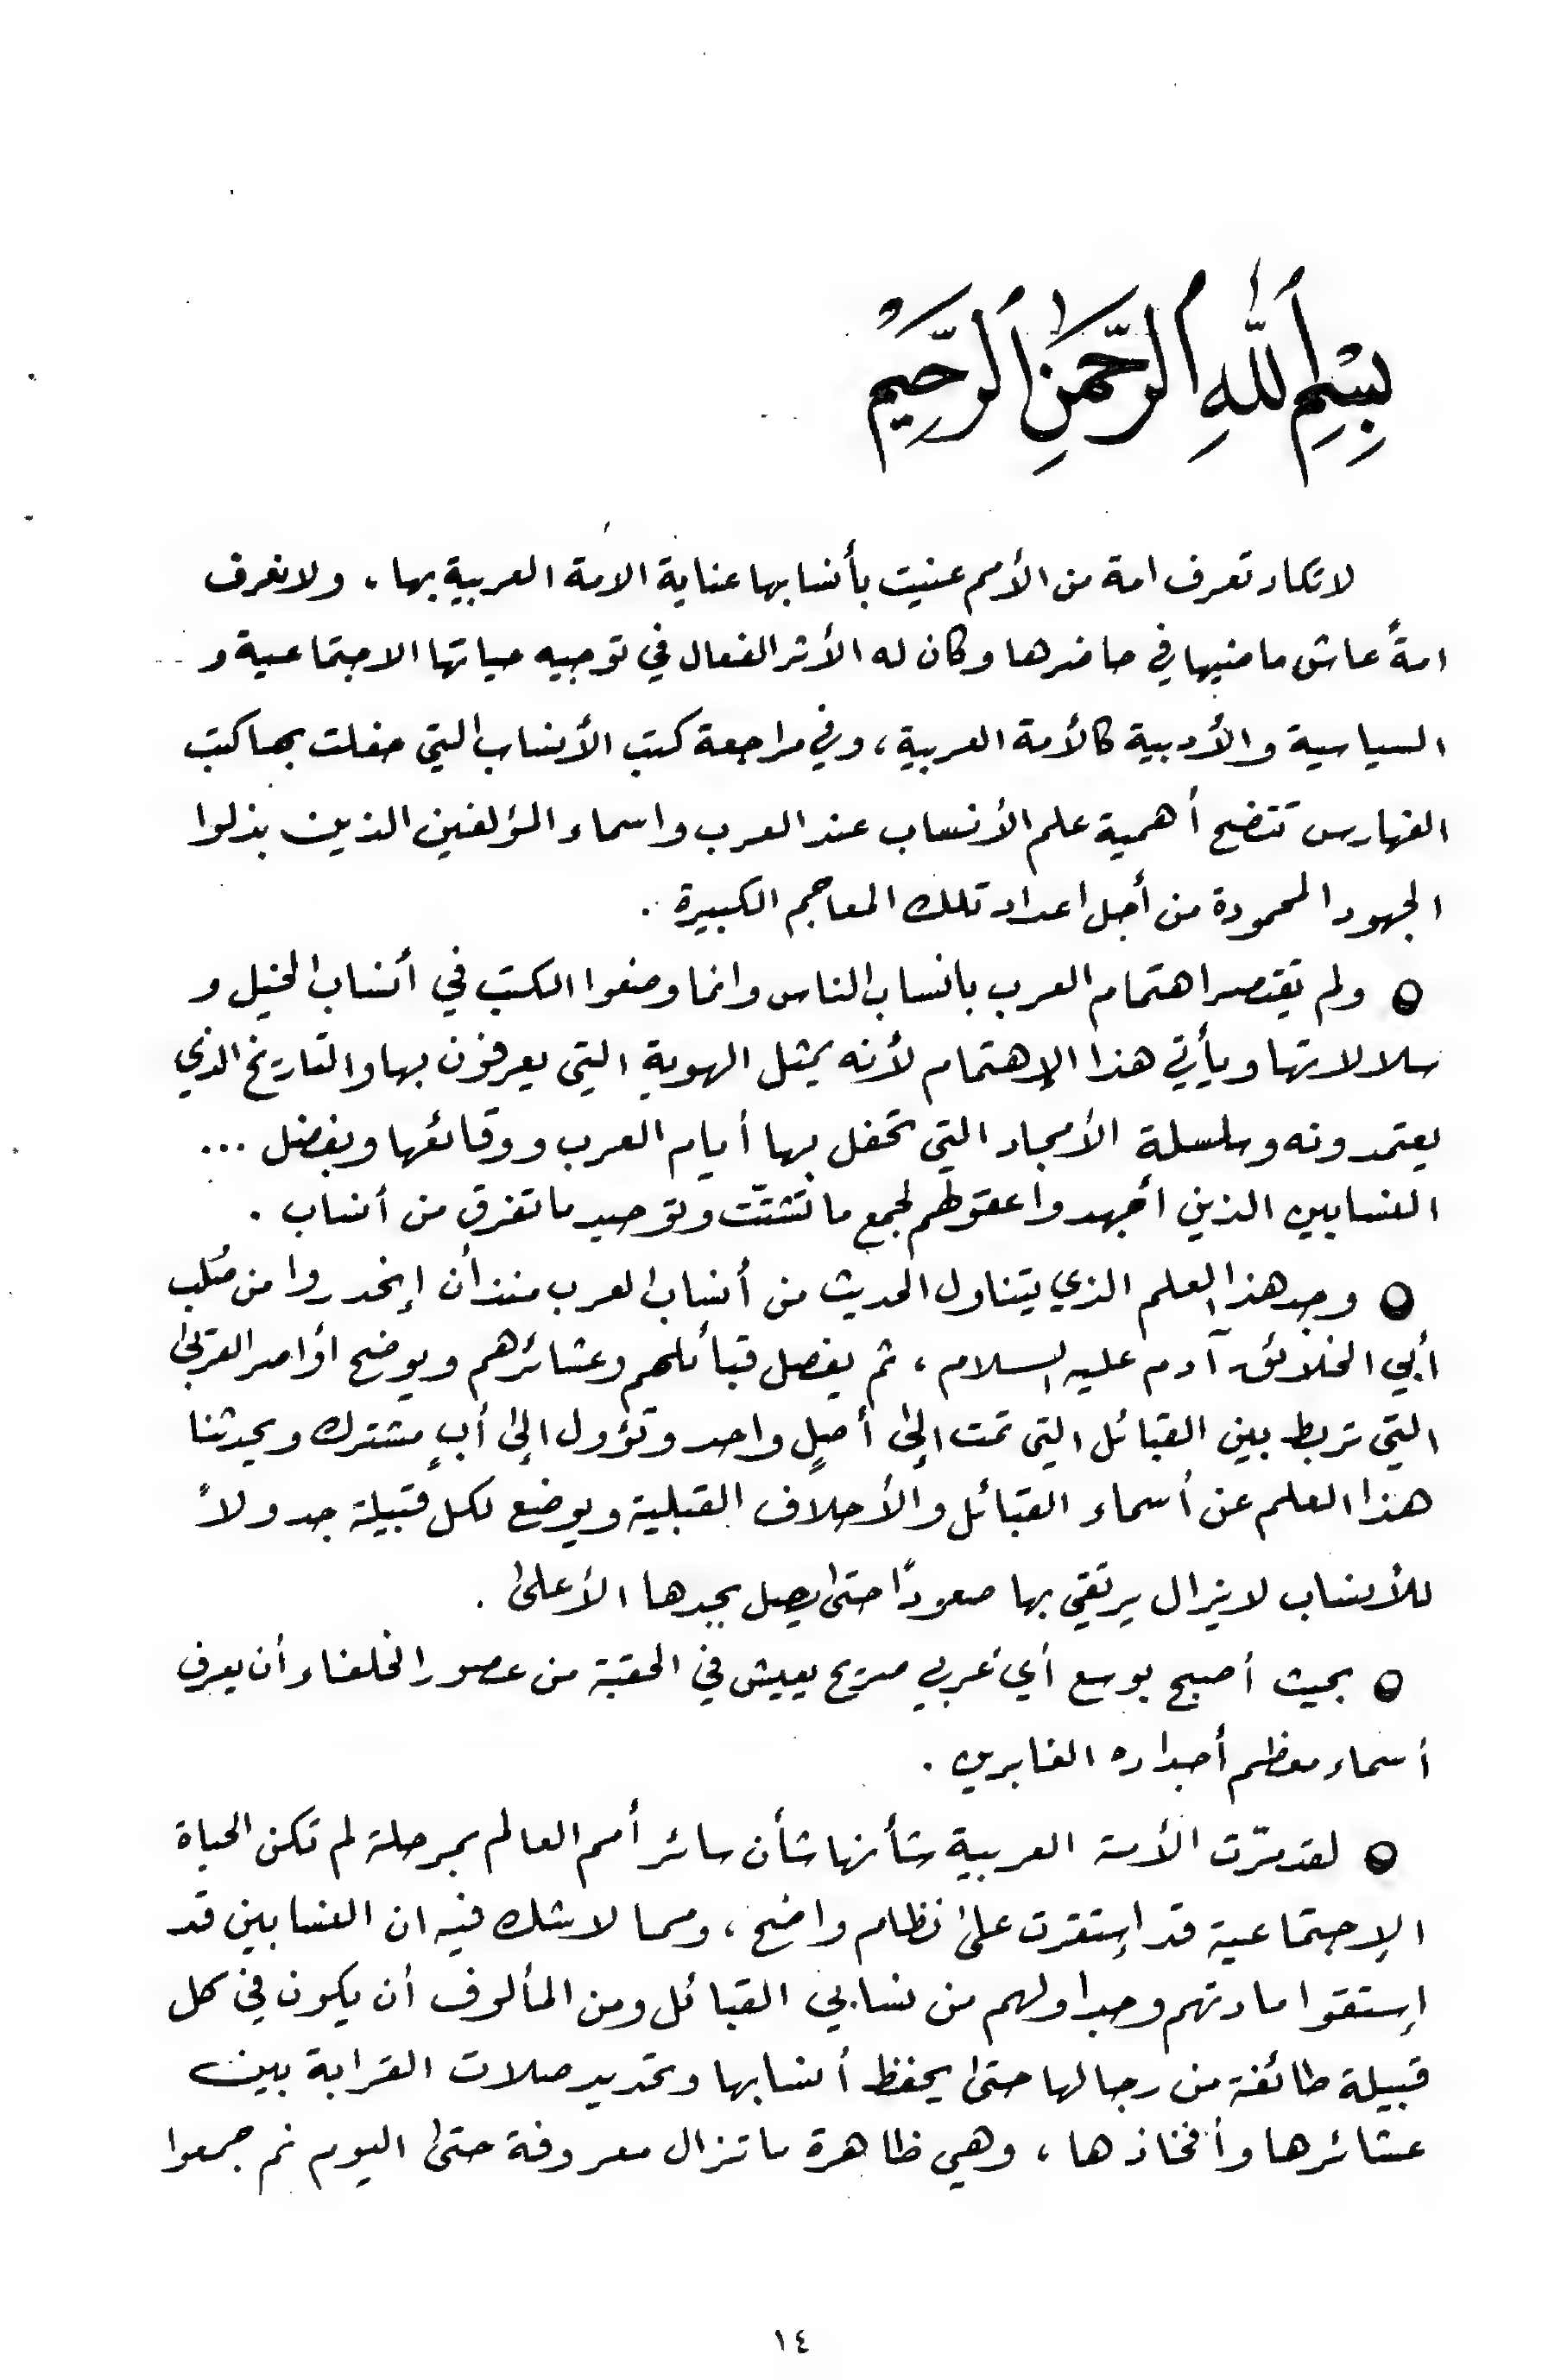 بِسْمِ ٱللَّهِ ٱلرَّحْمَٰنِ ٱلرَّحِيمِ
لا تكاد تعرف امة من الأمم عنيت بأنسابها عناية الامة العربية بها ، ولا نعرف
امةً عاش ماضيها في حاضرها وكان له الأثر الفعال في توجيه حياتها الاجتماعية و
السياسية والأدبية كالأمة العربية ، وفي مراجعة كتب الأنساب التي حفلت بها كتب
الفهارس تتضح أهمية علم الأنساب عند العرب واسماء المؤلفين الذين بذلوا
الجهود المحمودة من أجل اعداد تلك المعاجم الكبيرة .
● ولم تقتصر اهتمام العرب بانساب الناس وانما وضعوا الكتب في أنساب الخيل و
سلالاتها ويأتي هذا الإهتمام لأنه يمثل الهوية التي يعرفون بها والتاريخ الذي
يعتمدونه وسلسلة الأمجاد التي تحفل بها أيام العرب ووقائعها وبفضل ...
النسابين الذين أجهدوا عقولهم لجمع ما تشتّت وتوحيد ما تفرق من أنساب .
● وجد هذا العلم الذي يتناول الحديث من أنساب العرب منذ أن إنحدروا من صُلب
أبي الخلائق آدم عليه السلام ، ثم يفصل قبائلهم وعشائرهم ويوضح أواصر القربى
التي تربط بين القبائل التي تمت إلى أصلٍ واحد وتؤول إلى أبٍ مشترك ويحدثنا
هذا العلم عن أسماء القبائل والأحلاف القبلية ويوضع لكل قبيلة جدولاً
للأنساب لا يزال يرتقي بها صعودًا حتى يصل بجدها الأعلى .
● بحيث أصبح بوسع أي عربي صريح يعيش في الحقبة من عصور الخلفاء أن يعرف
أسماء معظم أجداده الغابرين .
● لقد مرّت الأمة العربية شأنها شأن سائر أمم العالم بمرحلة لم تكن الحياة
الإجتماعية قد إستقرت على نظام واضح ، ومما لا شك فيه ان النسابين قد
إستقوا مادتهم وجداولهم من نسابي القبائل ومن المألوف أن يكون في كل
قبيلة طائفة من رجالها حتى يحفظ أنسابها وتحديد صلات القرابة بين
عشائرها وأفخاذها ، وهي ظاهرة ما تزال معروفة حتى اليوم ثم جمعوا
١٤